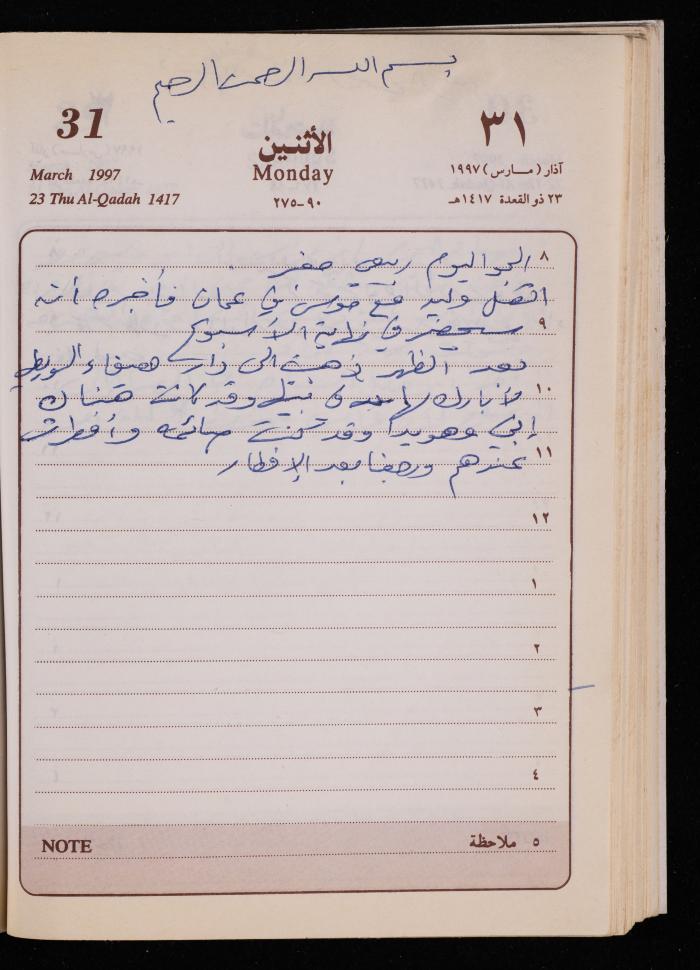 بسم الله الرحمن الرحيم
31
الأثنين
٣١
March 1997
Monday
آذار (مارس) ١٩٩٧
23 Thu Al-Qadah 1417
٢٧٥-٩٠
٢٣ ذو القعدة ١٤١٧هـ
٨ الجو اليوم ربيعي
اتصل وليد مع موسى في عمان فأخبره أنه
٩ سيحضر في نهاية الأسبوع
بعد الظهر ذهبت الى دار هيفاء
١٠ لأبارك لها وقد كانت هناك
وهويدا وقد كنت صائمه وأفطرت
١١ عندهم ورجعنا بعد الإفطار
١٢
١
٢
٣
٤
NOTE
٥ ملاحظة